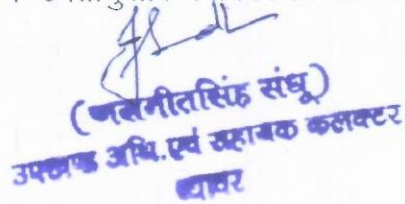 (जसमीतसिंह संधू)
उपखण्ड अधि. एवं सहायक कलक्टर
ब्यावर